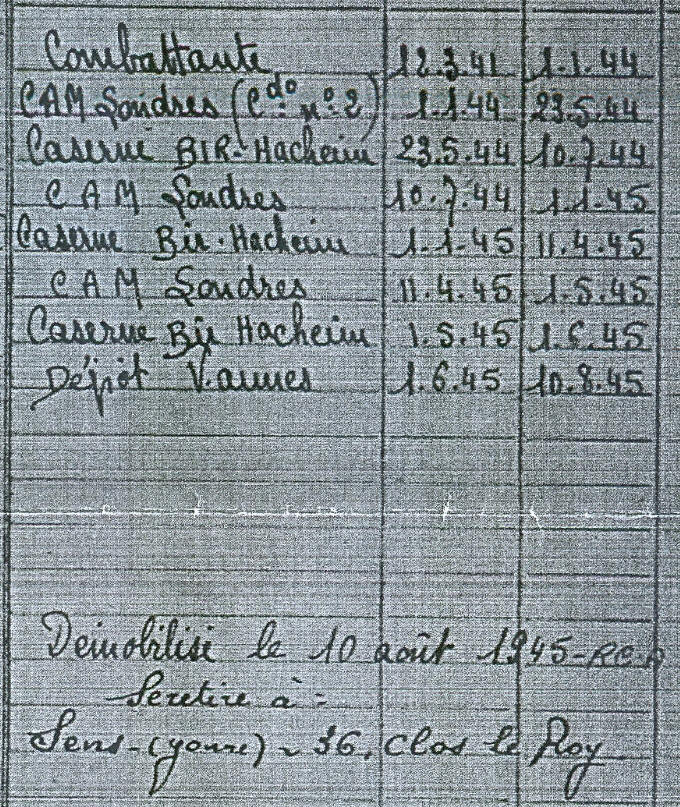 Combattante 12.3.41 1.1.44
CAM Londres (Cdo n°2) 1.1.44 23.5.44
Caserne BIR-Hacheim 23.5.44 10.7.44
CAM Londres 10.7.44 1.1.45
Caserne Bir-Hacheim 1.1.45 11.4.45
CAM Londres 11.4.45 1.5.45
Caserne Bir Hacheim 1.5.45 1.6.45
Dépôt Vannes 1.6.45 10.8.45
Démobilisé le 10 août 1945-
Se retire à :
Sens-(yonne) ~ 36, Clos le Roy